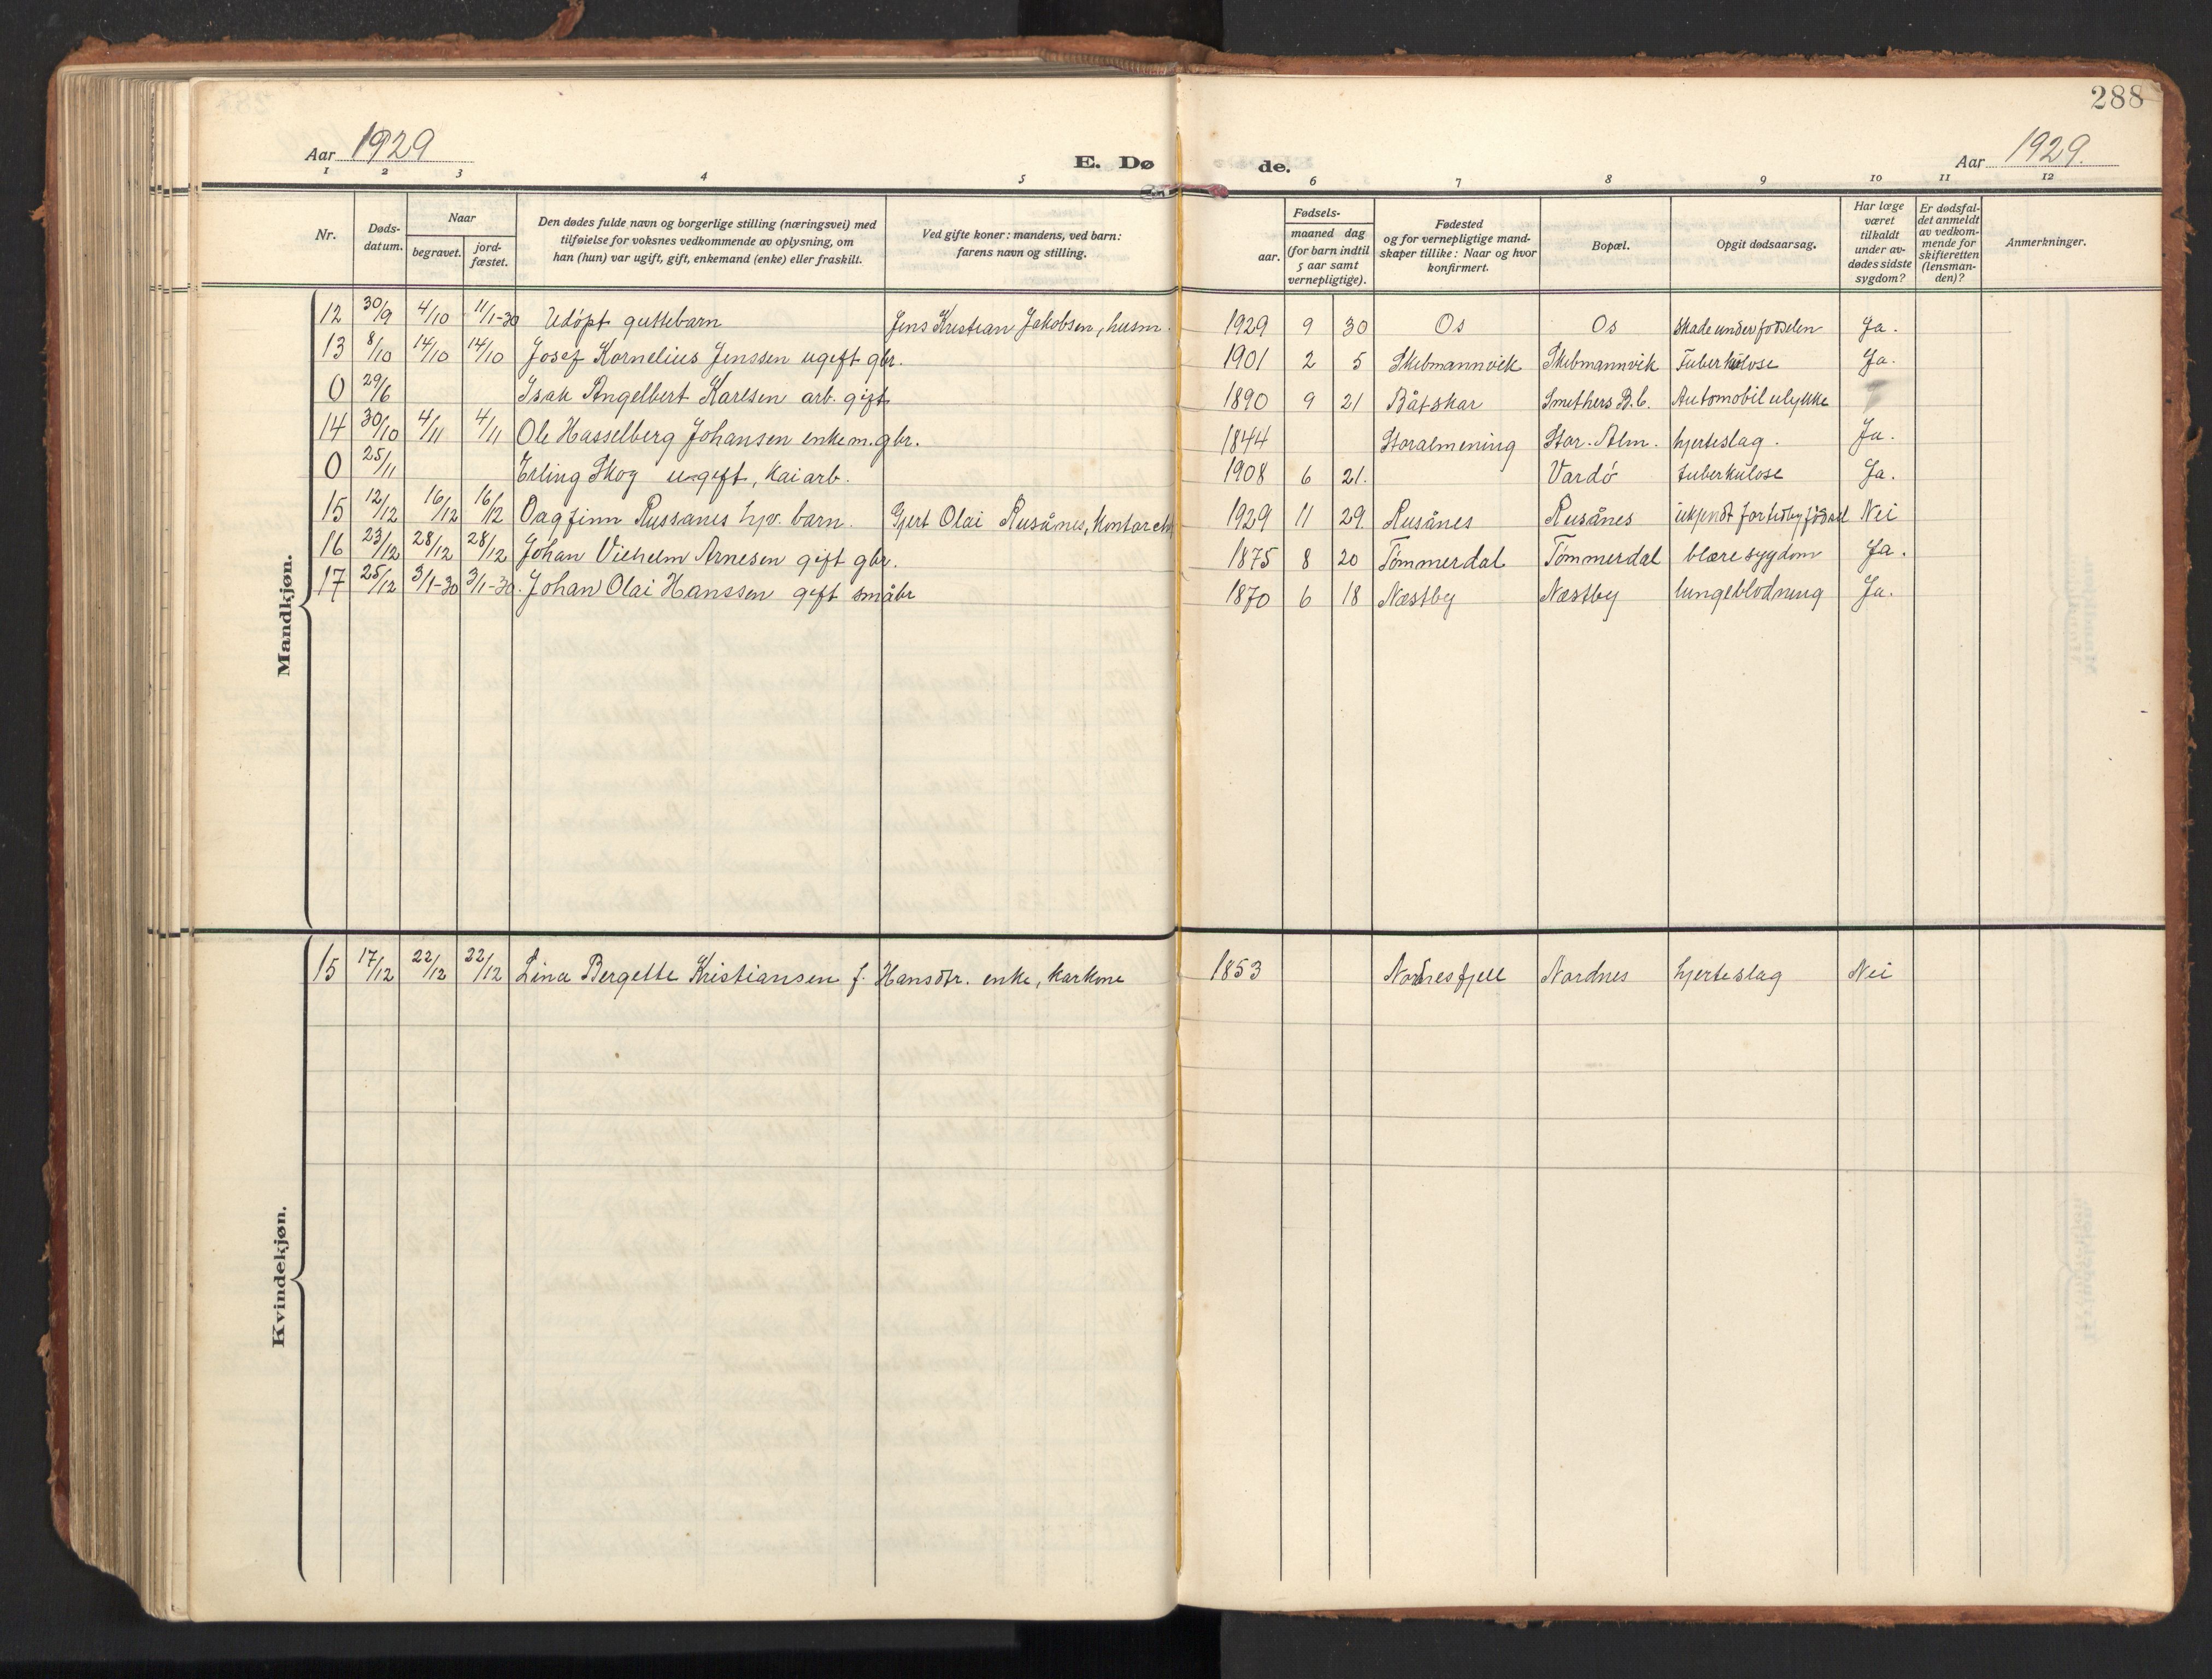 288
Aar 1929 E. Døde. Aar 1929.
1 2 3 4 5 6 7 8 9 10 11 12
Nr. Døds-datum. Naar begravet. jord-fæstet. Den dødes fulde navn og borgerlige stilling (næringsvei) med tilføielse for voksnes vedkommende av oplysning, om han (hun) var ugift, gift, enkemand (enke) eller fraskilt. Ved gifte koner: mandens, ved barn: farens navn og stilling. Fødsels- aar. maaned dag (for barn indtil 5 aar samt vernepligtige). Fødested og for vernepligtige mand-skaper tillike: Naar og hvor konfirmert. Bopæl. Opgit dødsaarsag. Har læge været tilkaldt under av-dødes sidste sygdom? Er dødsfal-det anmeldt av vedkom-mende for skifteretten (lensman-den)? Anmerkninger.
Mandkjøn.
12 30/9 4/10 11/1-30 Udöpt guttebarn Jens Kristian Jakobsen, husm. 1929 9 30 Os Os skade under fødselen Ja.
13 8/10 14/10 14/10 Josef Kornelius Jenssen ugift gbr. 1901 2 5 Skebmannvik Skebmannvik Tuberkulose Ja.
0 29/6 Isak Angelbert Karlsen arb. gift 1890 9 21 Båtskar Smithers B.C. Automobilulykke
14 30/10 4/11 4/11 Ole Hasselberg Johansen enkem. gbr. 1844 Storalmening Stor. Alm. hjerteslag. Ja.
0 25/11 Erling Skog ugift, Kaiarb. 1908 6 21. Vardö tuberkulose Ja.
15 12/12 16/12 16/12 Dagfinn Russanes hjv. barn. Gjert Olai Rusånes, 1929 11 29. Rusånes Rusånes Nei
16 23/12 28/12 28/12 Johan Vilhelm Arnesen gift gbr. 1875 8 20 Tömmerdal Tömmerdal blæresygdom Ja.
17 25/12 3/1-30 3/1-30. Johan Olai Hanssen gift småbr 1870 6 18 Næstby Næstby lungeblödning Ja.
Kvindekjøn.
15 17/12 22/12 22/12 Lina Bergette Kristiansen f. Hansdtr. enke, karkone 1853 Nordnesfjell Nordnes hjerteslag Nei